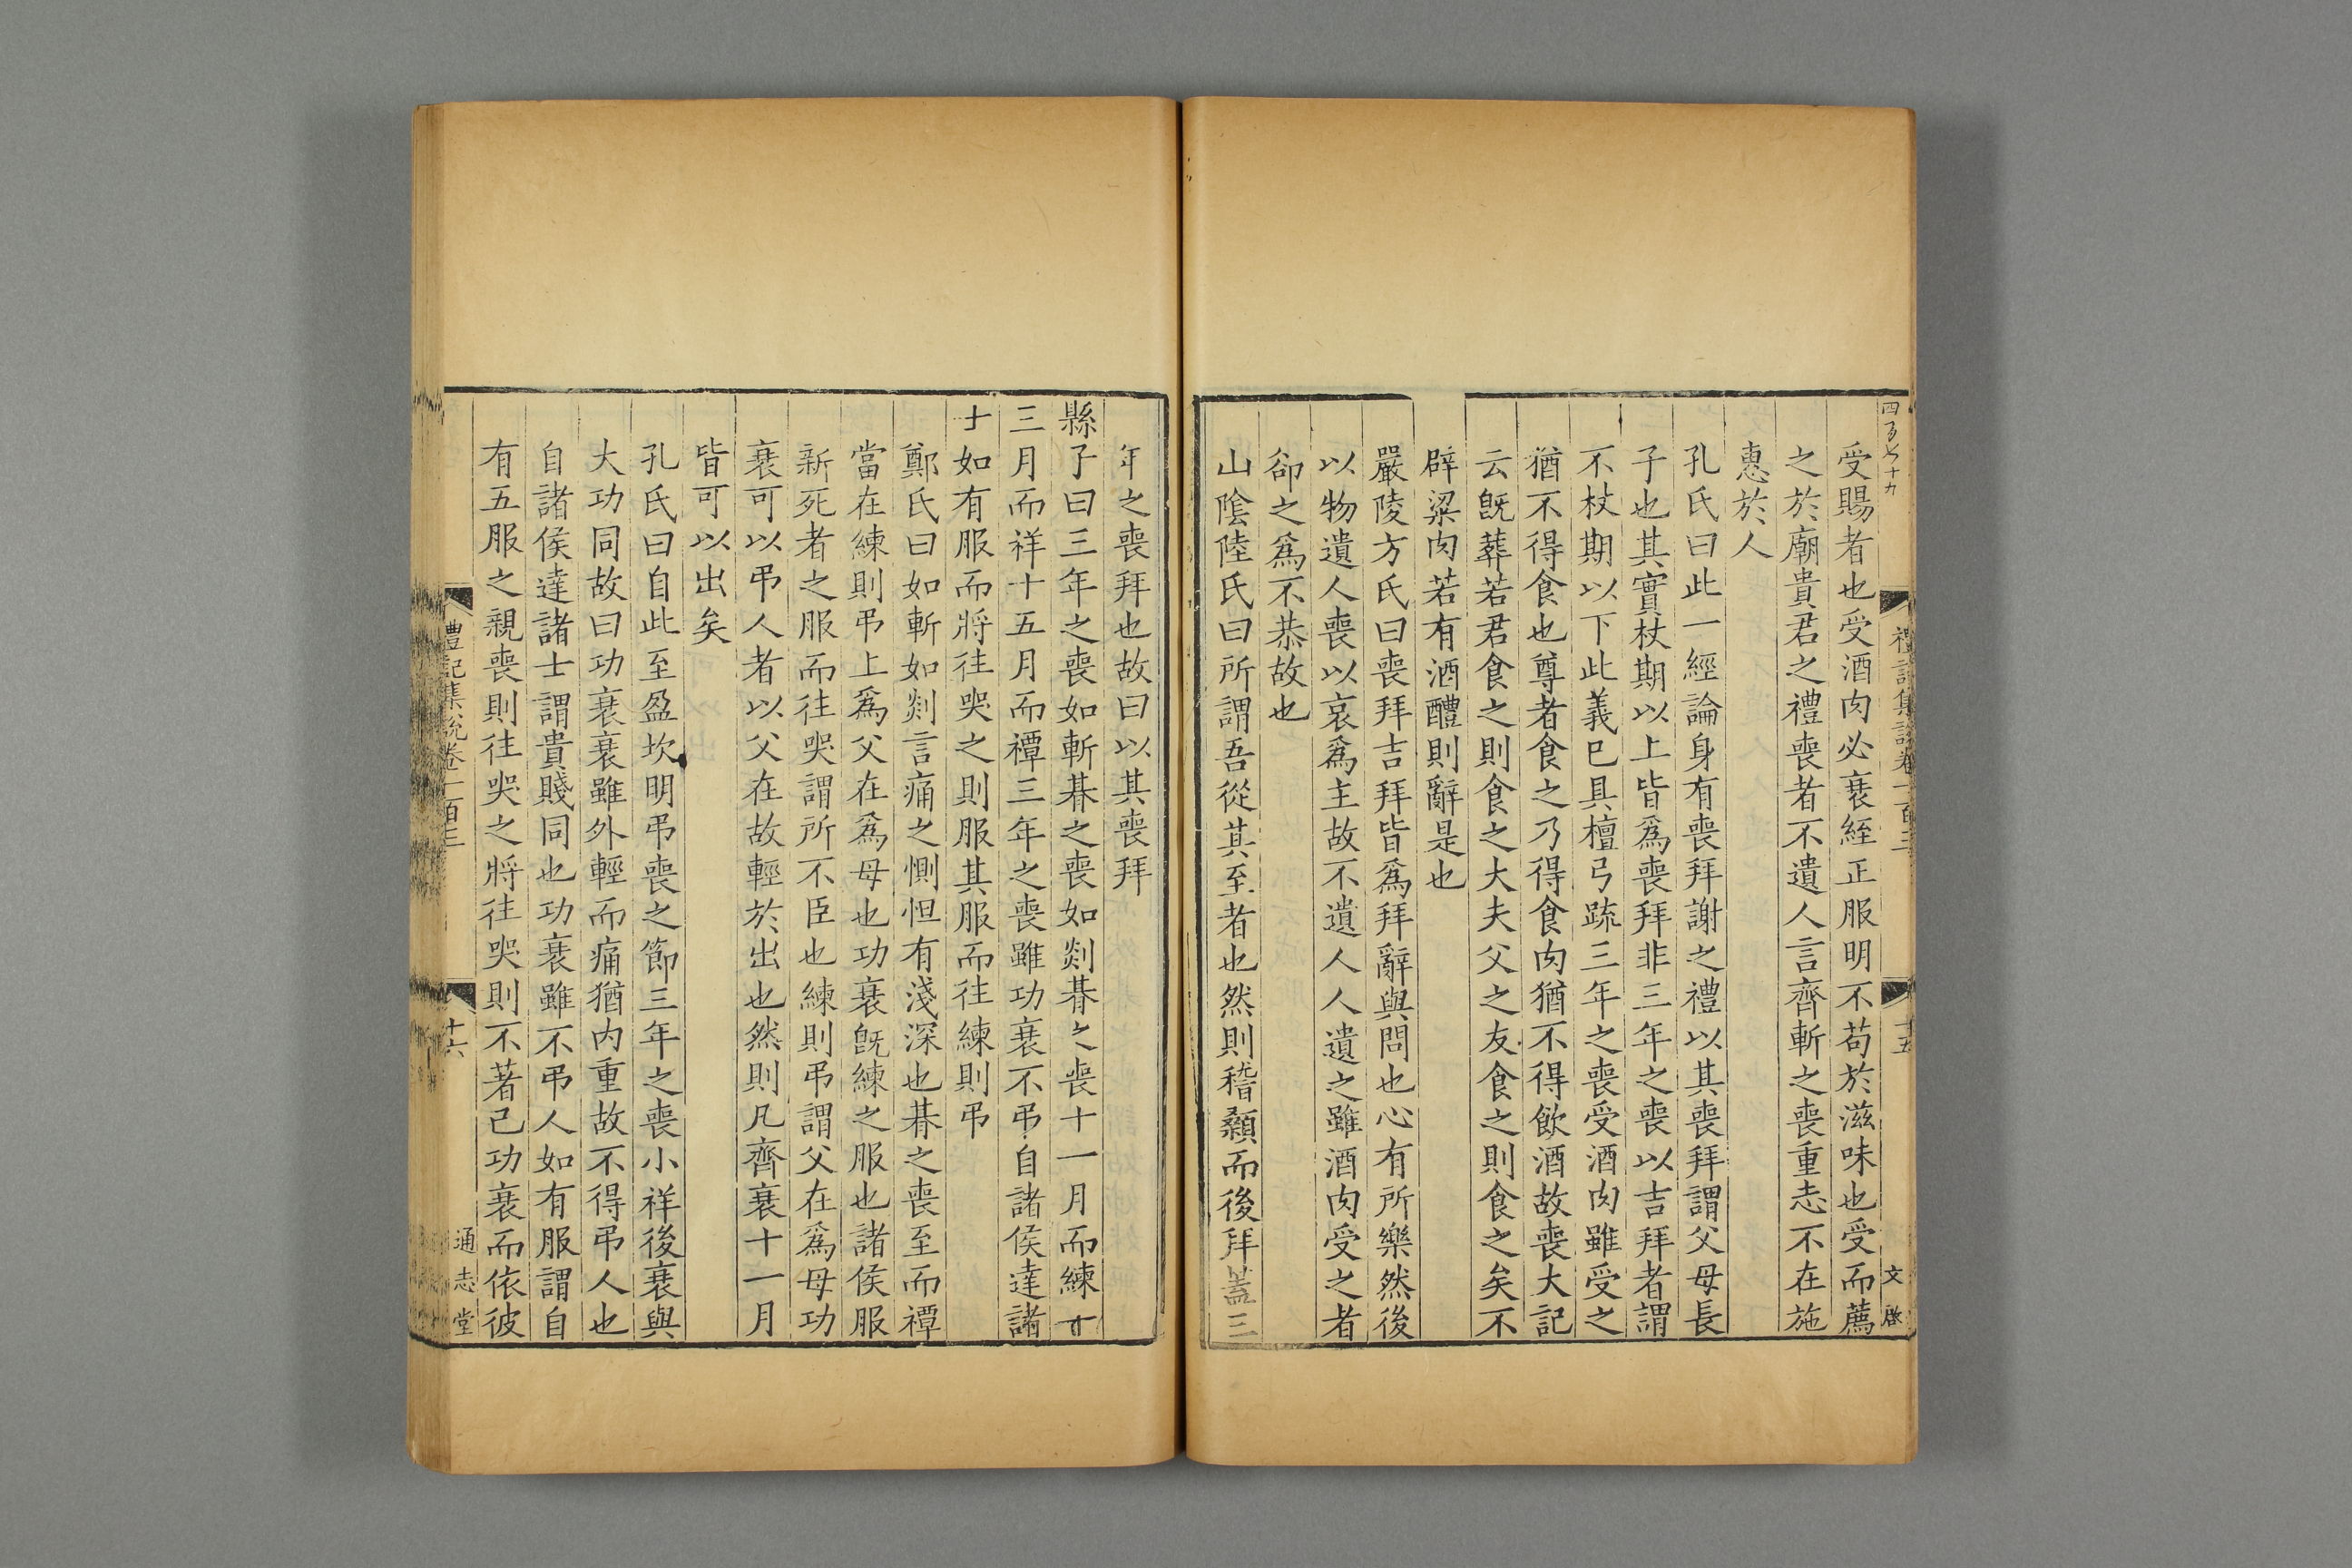 四百七十九
禮記集說卷一百三
十五
文啓
受賜者也受酒肉必衰絰正服明不苟於滋味也受而薦
之於廟貴君之禮喪者不遺人言齊斬之喪重志不在施
惠於人
孔氏曰此一經論身有喪拜謝之禮以其喪拜謂父母長
子也其實杖期以上皆爲喪拜非三年之喪以吉拜者謂
不杖期以下此義巳具檀弓疏三年之喪受酒肉雖受之
猶不得食也尊者食之乃得食肉猶不得飲酒故喪大記
云旣葬若君食之則食之大夫父之友食之則食之矣不
辟粱肉若有酒醴則辭是也
嚴陵方氏曰喪拜吉拜皆爲拜辭與問也心有所樂然後
以物遺人喪以哀爲主故不遺人人遺之雖酒肉受之者
卻之爲不恭故也
山陰陸氏曰所謂吾從其至者也然則稽顙而後拜蓋三
年之喪拜也故曰以其喪拜
縣子曰三年之喪如斬朞之喪如剡朞之喪十一月而練十
三月而祥十五月而禫三年之喪雖功衰不弔自諸侯達諸
士如有服而將往哭之則服其服而往練則弔
鄭氏曰如斬如剡言痛之惻怛有淺深也朞之喪至而禫
當在練則弔上爲父在爲母也功衰旣練之服也諸侯服
新死者之服而往哭謂所不臣也練則弔謂父在爲母功
衰可以弔人者以父在故輕於出也然則凡齊衰十一月
皆可以出矣
孔氏曰自此至盈坎明弔喪之節三年之喪小祥後衰與
大功同故曰功衰衰雖外輕而痛猶內重故不得弔人也
自諸侯達諸士謂貴賤同也功衰雖不弔人如有服謂自
有五服之親喪則往哭之將往哭則不著己功衰而依彼
禮記集說卷一百三
十六
通志堂